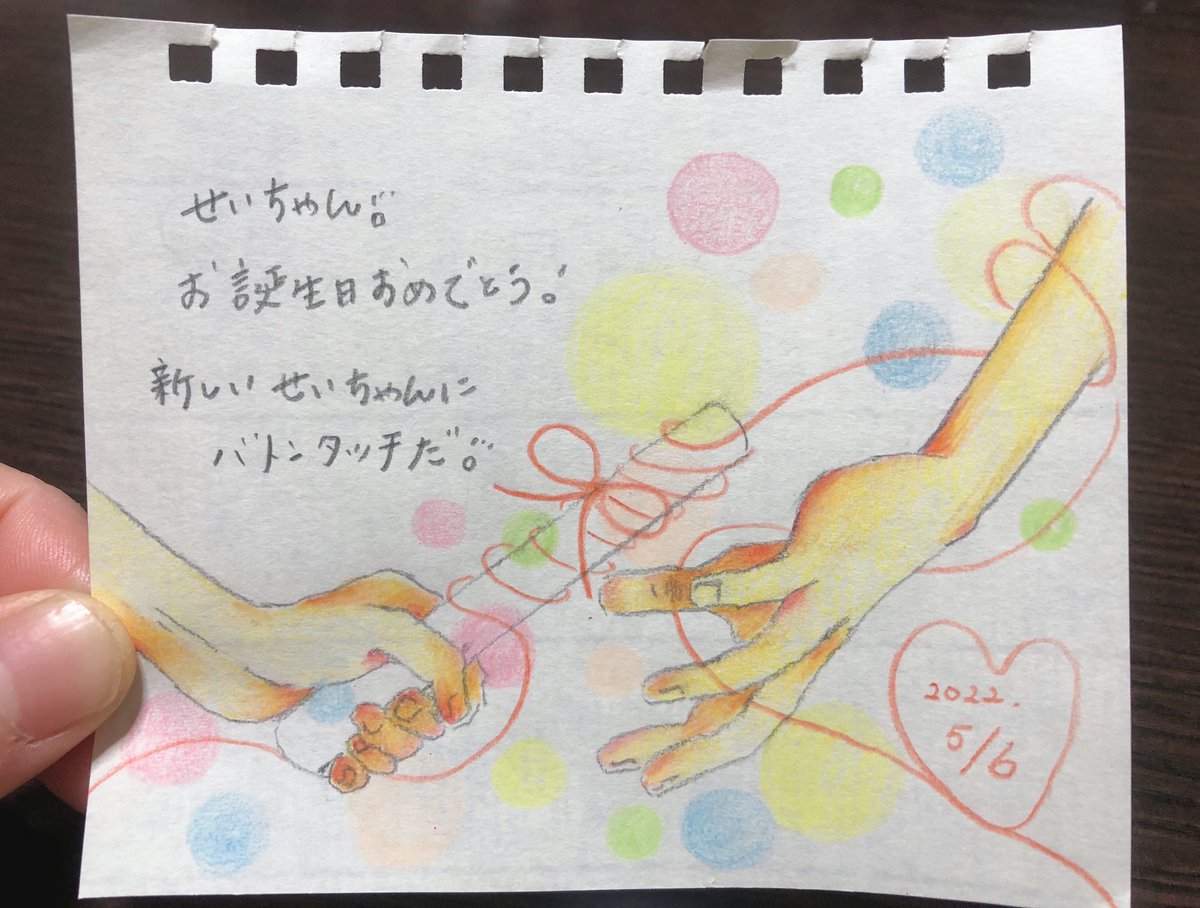 せいちゃん!!
お誕生日おめでとう!
新しいせいちゃんに
バトンタッチだ!!
2022.
5/6